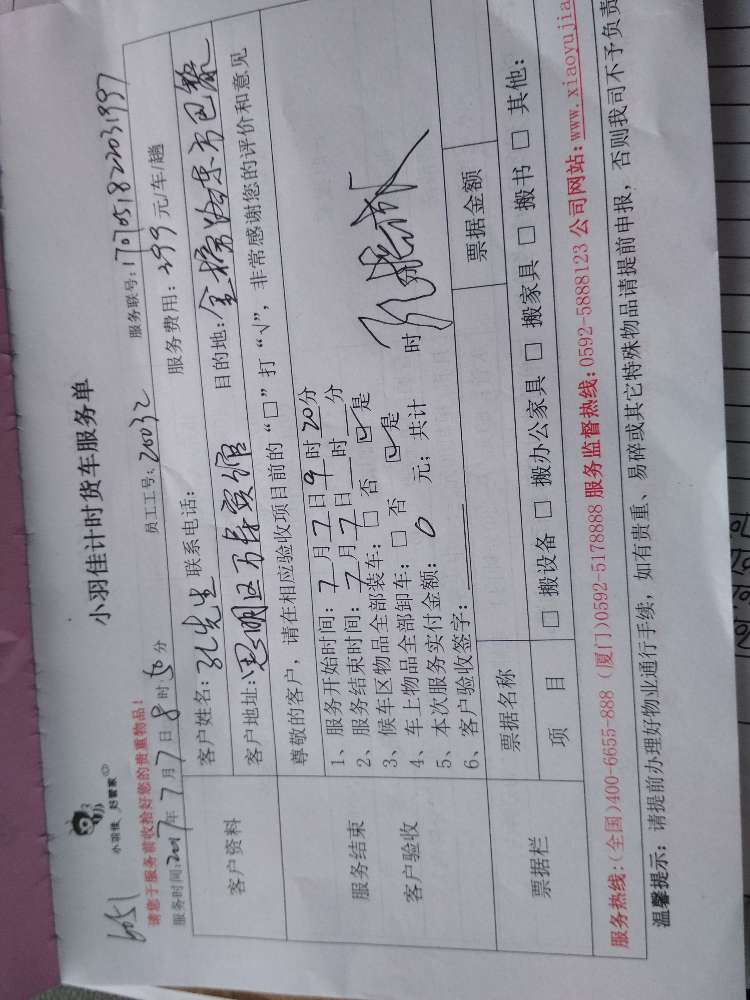 6051
小羽佳 好管家
小羽佳计时货车服务单
请您于服务前收拾好您的贵重物品！
服务时间：2017年7月7日8时50分 员工工号：20032 服务联号：1707051822031997
客户资料
客户姓名：孔先生 联系电话： 服务费用：399元/车/趟
客户地址：思明区万寿宾馆 目的地：
服务结束
客户验收
尊敬的客户，请在相应验收项目前的“□”打“√”，非常感谢您的评价和意见
1、服务开始时间：7月7日9时20分
2、服务结束时间：7月7日 时 分
3、候车区物品全部装车：□ 否 ☑ 是
4、车上物品全部卸车：□ 否 ☑ 是
5、本次服务实付金额：0元；共计 时 分
6、客户验收签字：
票据栏
票据名称 票据金额
项 目 □ 搬设备 □ 搬办公家具 □ 搬家具 □ 搬书 □ 其他：
服务热线：（全国）400-6655-888（厦门）0592-5178888 服务监督热线：0592-5888123 公司网站：www.xiaoyujia
温馨提示：请提前办理好物业通行手续，如有贵重、易碎或其它特殊物品请提前申报，否则我司不予负责